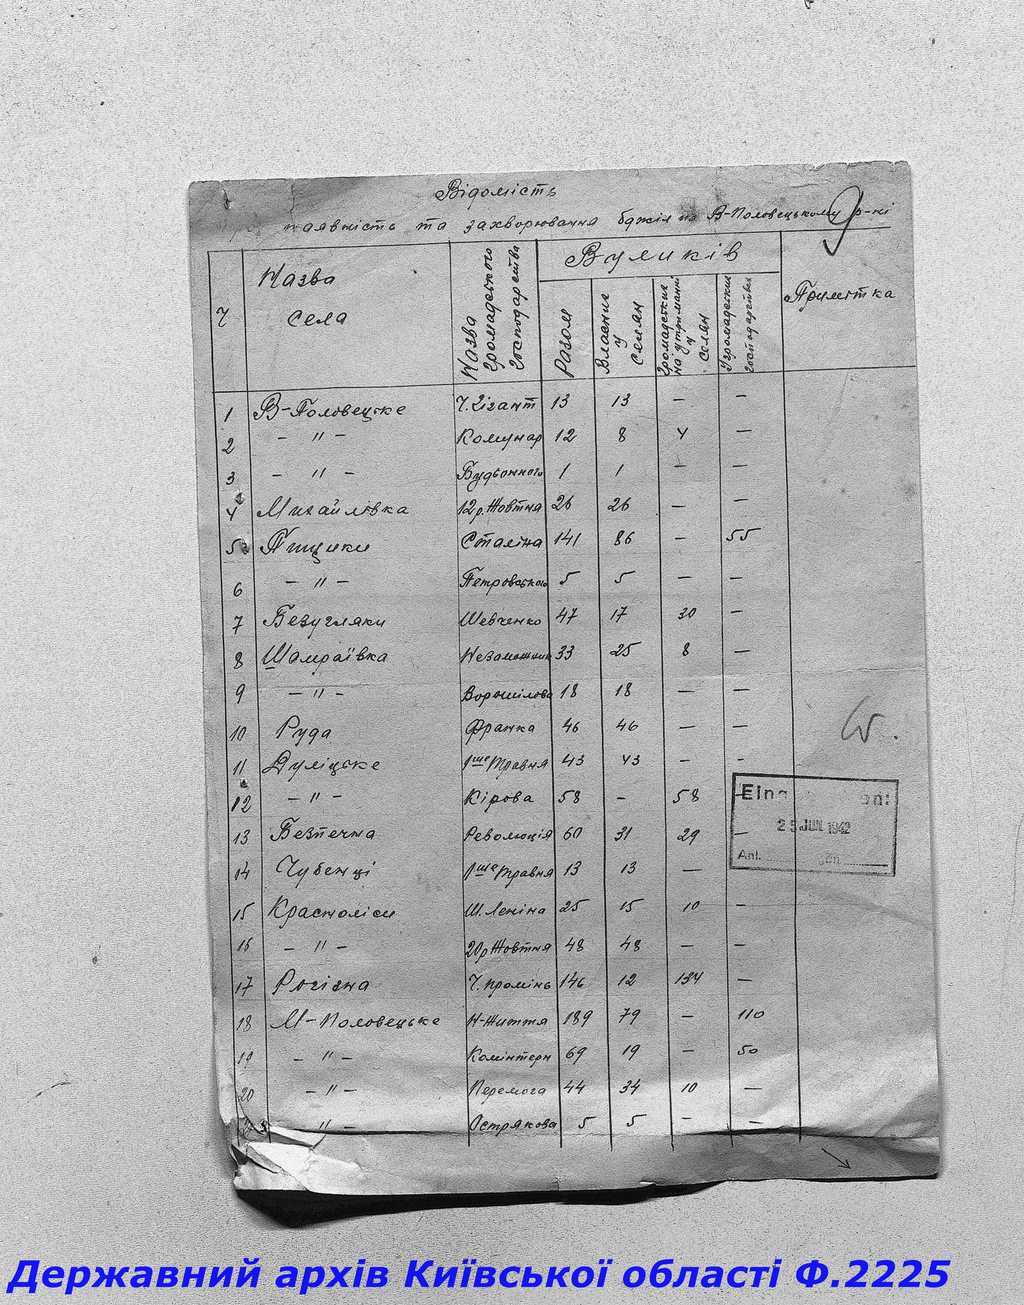 Відомість
наявність та захворювання бджіл по В-Половецькому р-ні
Ч Назва села Назва громадського господарства Вуликів Примітка
Разом Власних у селян Громадських на утриманні у селян У громадських господарствах
1 В-Половецьке Ч. Гігант 13 13 — —
2 — " — Комунар 12 8 4 —
3 — " — Будьонного 1 1 — —
4 Михайлівка 12 р. Жовтня 26 26 — —
5 Пищики Сталіна 141 86 — 55
6 — " — Петровського 5 5 — —
7 Безугляки Шевченко 47 17 30 —
8 Шамраївка Незаможник 33 25 8 —
9 — " — Ворошілова 18 18 — —
10 Руда Франка 46 46 — —
11 Дулицьке 1ше Травня 43 43 — -
12 — " — Кірова 58 - 58 —
13 Безпечна Революція 60 31 29 —
14 Чубенці 1ше Травня 13 13 —
15 Красноліси Ш. Леніна 25 15 10 -
16 — " — 20 р Жовтня 48 48 — —
17 Рогізна Ч. промінь 146 12 134 —
18 М-Половецьке Н-Життя 189 79 — 110
19 — " — Комінтерн 69 19 — 50
20 — " — Перемога 44 34 10 —
" — Острякова 5 5 — —
25 JUN 1942
Anl.
Державний архів Київської області Ф.2225